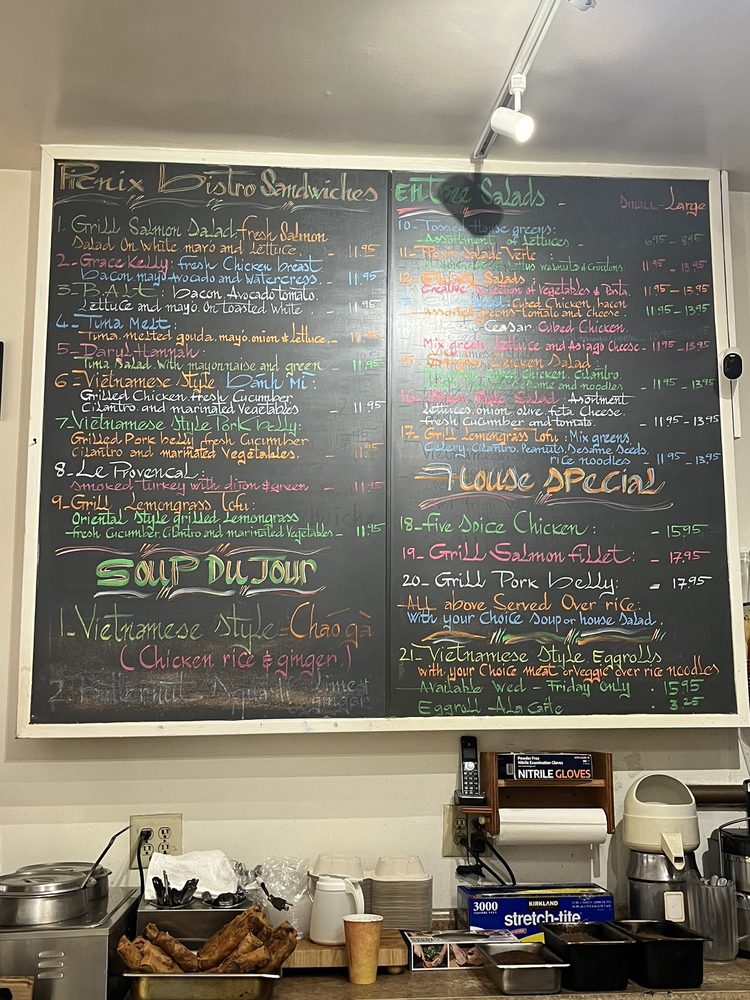 Picnix Bistro Sandwiches
1. Grill Salmon Salad, fresh Salmon
Salad On White mayo and lettuce. - 11.95
2- Grace Kelly: fresh Chicken breast
bacon, mayo Avocado and Watercress. - 11.95
3- B.A.L.T: bacon, Avocado tomato.
Lettuce and mayo. On Toasted White - 11.95
4- Tuna Melt:
Tuna, melted gouda, mayo, onion & lettuce.
5- Daryl Hannah:
Tuna Salad with mayonnaise and green - 11.95
6- Vietnamese Style Bánh Mì:
Grilled Chicken fresh Cucumber
Cilantro and marinated Vegetables - 11.95
7- Vietnamese Style Pork belly:
Grilled Pork belly fresh Cucumber
Cilantro and marinated Vegetables. - 11.95
8- Le Provencal:
Smoked Turkey with dijon & green - 11.95
9- Grill Lemongrass Tofu:
Oriental Style grilled Lemongrass
fresh Cucumber Cilantro and marinated Vegetables - 11.95
Soup Du Jour
1- Vietnamese Style = Cháo gà
(Chicken rice & ginger.)
2- Butternut Squash lime &
ginger
Entree Salads - Small - Large
10- Tossed House greens:
Assortment of Lettuces - 6.95 - 8.95
11- Salade Verte:
walnuts & Croutons. 11.95 - 13.95
12- Salads
Creative of Vegetables & Pasta. 11.95 - 13.95
Cubed Chicken, bacon
Assorted greens tomato and cheese. - 11.95 - 13.95
Ceasar. Cubed Chicken.
Mix green lettuce and Asiago Cheese - 11.95 - 13.95
Vietnamese
Salad:
chicken, cilantro
and noodles - 11.95 - 13.95
16- Style Salad: Asortment
lettuces, onion, olive, feta Cheese.
fresh Cucumber and tomato. - 11.95 - 13.95
17- Grill Lemongrass Tofu: Mix greens
Celery, Cilantro, Peanuts, Sesame Seeds,
rice noodles - 11.95 - 13.95
House Special
18- Five Spice Chicken: - 15.95
19- Grill Salmon fillet: - 17.95
20- Grill Pork belly: - 17.95
-All above Served Over rice:
with your Choice Soup or house Salad.
21- Vietnamese Style Eggrolls
with your Choice meat or Veggie over rice noodles
Available Wed - Friday Only . 15.95
Eggroll Ala Carte . 3.25
Powder Free
Nitrile Examination Gloves
NITRILE GLOVES
3000
SQUARE FEET
KIRKLAND
stretch-tite